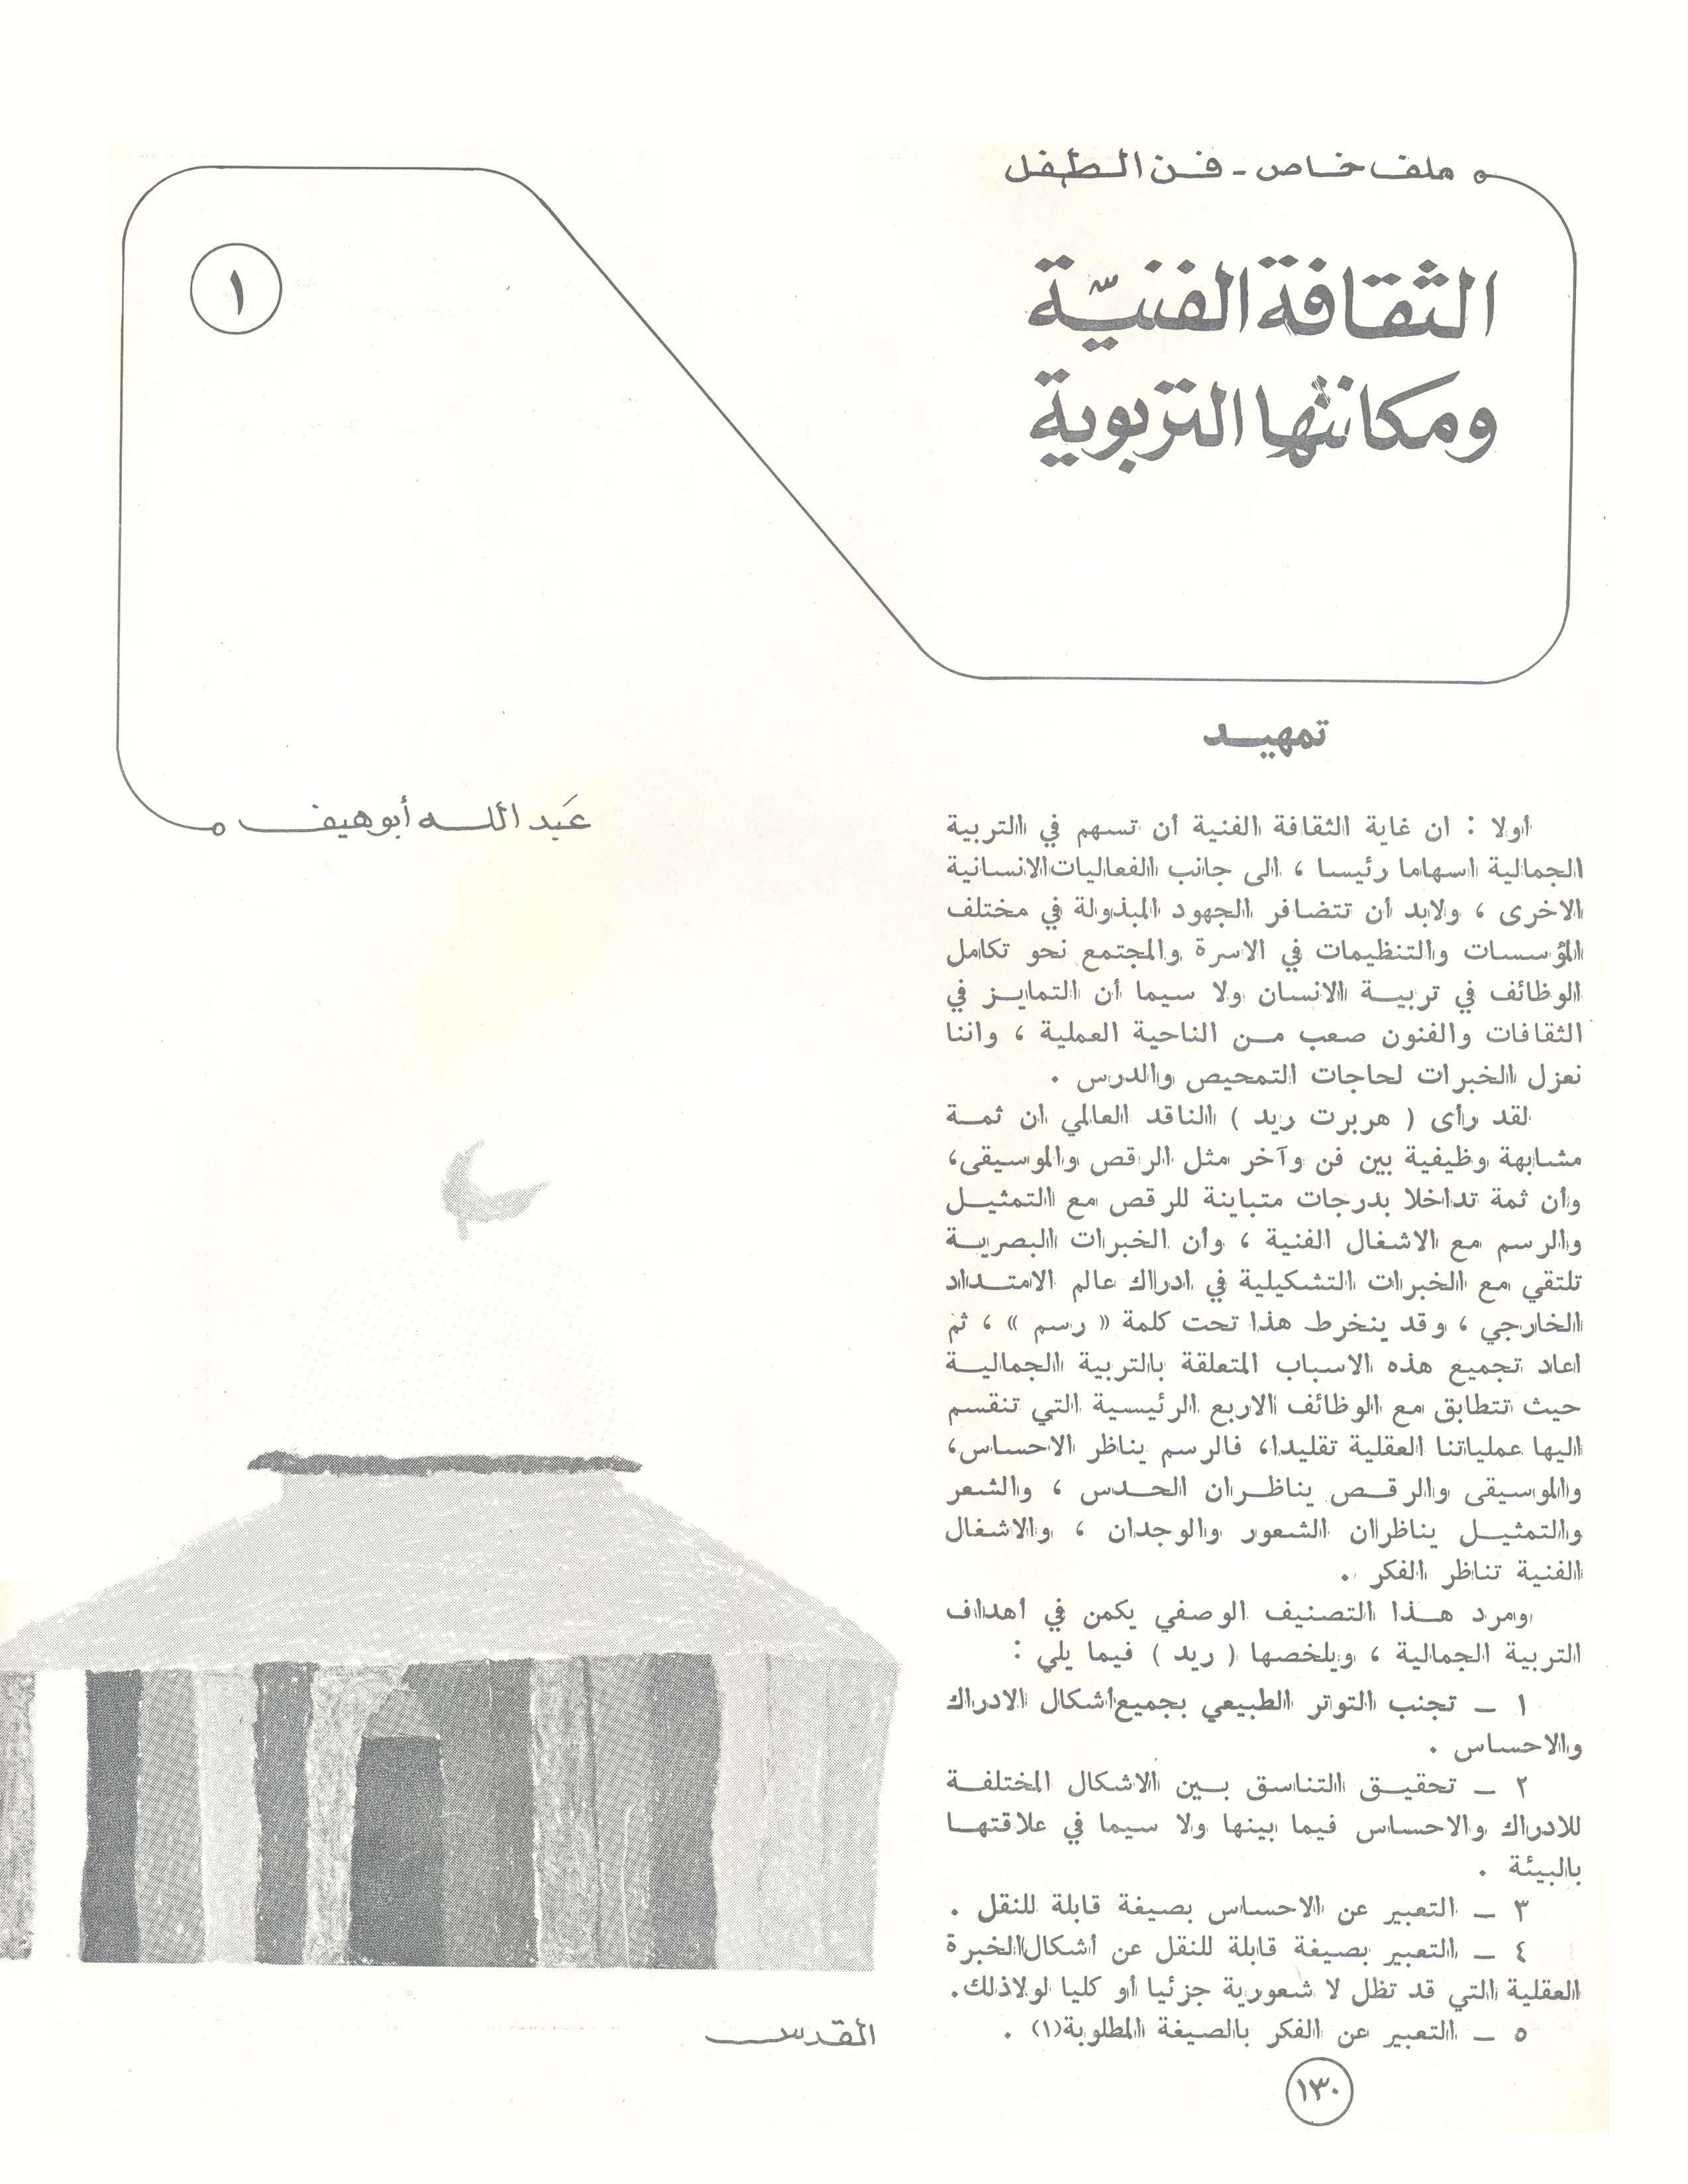 ملف خاص - فن الطفل
الثقافة الفنيّة
ومكانتها التربوية
١
عبد الله أبو هيف
تمهيد
أولا : ان غاية الثقافة الفنية أن تسهم في التربية
الجمالية اسهاما رئيسا ، الى جانب الفعاليات الانسانية
الاخرى ، ولابد أن تتضافر الجهود المبذولة في مختلف
المؤسسات والتنظيمات في الاسرة والمجتمع نحو تكامل
الوظائف في تربية الانسان ولا سيما أن التمايز في
الثقافات والفنون صعب من الناحية العملية ، واننا
نعزل الخبرات لحاجات التمحيص والدرس .
لقد رأى ( هربرت ريد ) الناقد العالمي ان ثمة
مشابهة وظيفية بين فن وآخر مثل الرقص والموسيقى،
وأن ثمة تداخلا بدرجات متباينة للرقص مع التمثيل
والرسم مع الاشغال الفنية ، وأن الخبرات البصرية
تلتقي مع الخبرات التشكيلية في ادراك عالم الامتداد
الخارجي ، وقد ينخرط هذا تحت كلمة « رسم » ، ثم
اعاد تجميع هذه الاسباب المتعلقة بالتربية الجمالية
حيث تتطابق مع الوظائف الاربع الرئيسية التي تنقسم
اليها عملياتنا العقلية تقليدا، فالرسم يناظر الاحساس،
والموسيقى والرقص يناظران الحدس ، والشعر
والتمثيل يناظران الشعور والوجدان ، والاشغال
الفنية تناظر الفكر .
ومرد هذا التصنيف الوصفي يكمن في أهداف
التربية الجمالية ، ويلخصها ( ريد ) فيما يلي :
١ ـ تجنب التوتر الطبيعي بجميع أشكال الادراك
والاحساس .
٢ ـ تحقيق التناسق بين الاشكال المختلفة
للادراك والاحساس فيما بينها ولا سيما في علاقتها
بالبيئة .
٣ ـ التعبير عن الاحساس بصيغة قابلة للنقل .
٤ ـ التعبير بصيغة قابلة للنقل عن أشكال الخبرة
العقلية التي قد تظل لا شعورية جزئيا أو كليا لولا ذلك.
٥ ـ التعبير عن الفكر بالصيغة المطلوبة(١) .
القدس
١٣٠